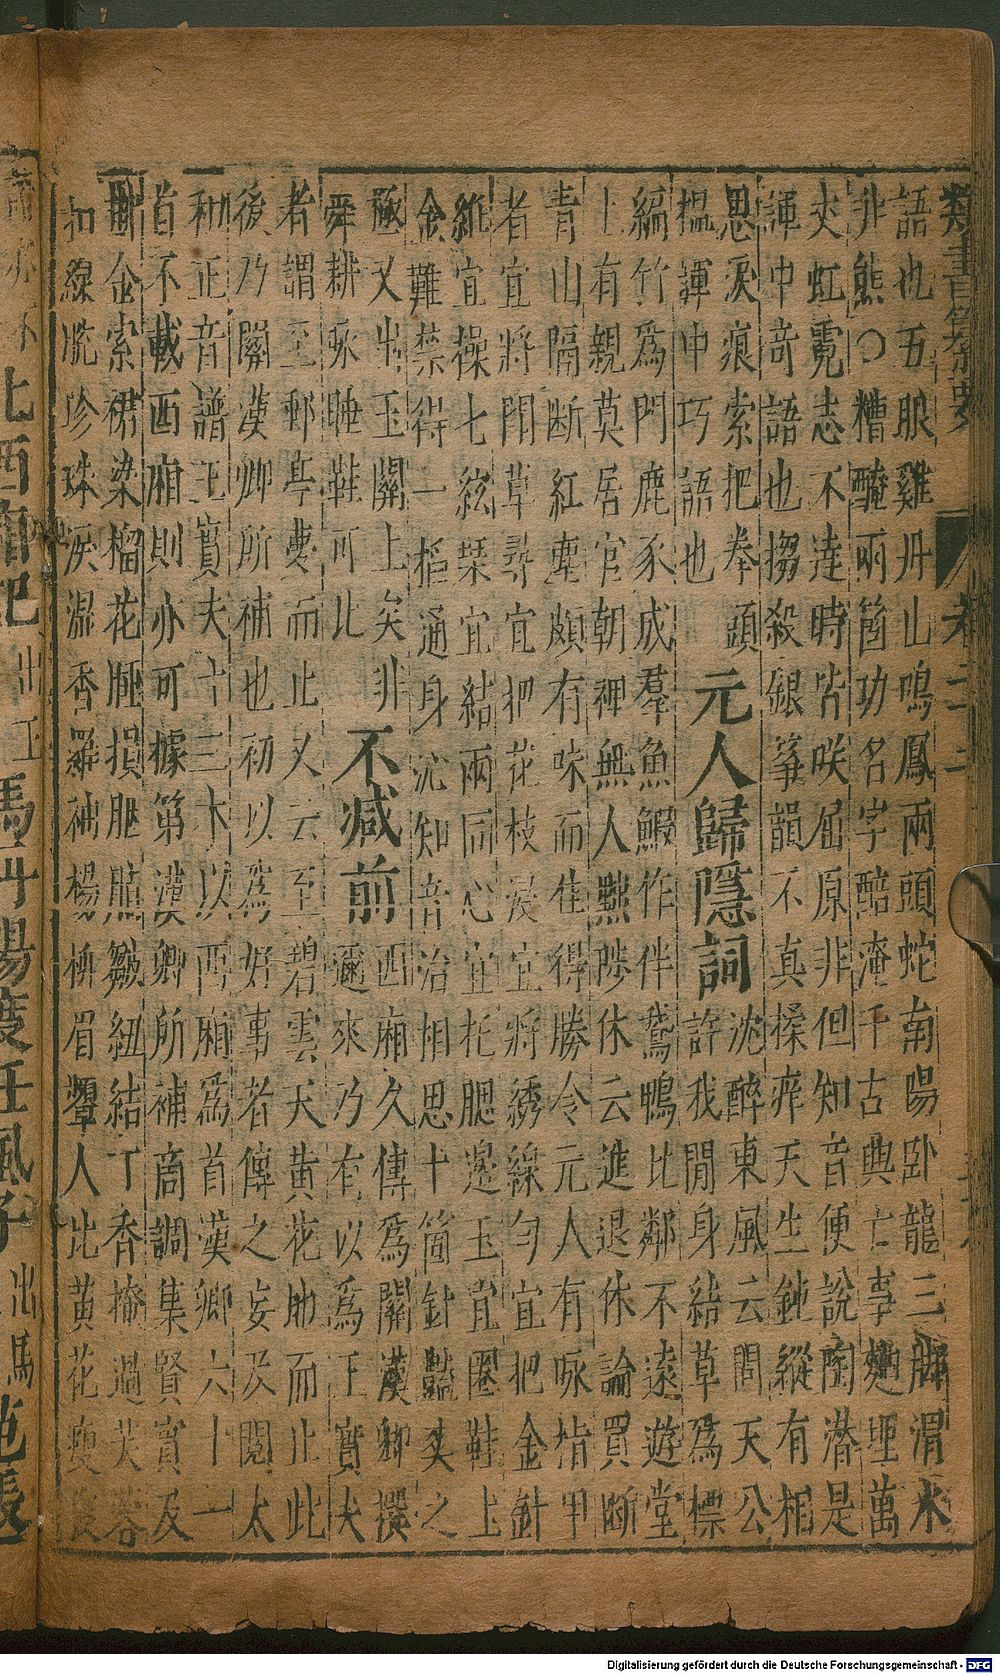 類書纂要 卷二十二
語也五眼雞丹山鳴鳳兩頭蛇南陽臥龍三脚猫渭水
非熊○糟醃兩箇功名字醅渰千古興亡事麯埋萬
丈虹霓志不達時皆咲屈原非但知音便說陶潛是
渾中奇語也搊殺銀箏韻不真揉痒天生鈍縱有相
思淚痕索把拳頭
榲渾中巧語也
元人歸隱詞
沈醉東風云問天公
許我閒身結草為標
縞竹為門鹿豕成羣魚鰕作伴鵞鴨比鄰不遠遊堂
上有親莫居官朝裡無人黜陟休云進退休論買斷
青山隔断紅塵頗有味而佳得勝令元人有咏指甲
者宜將鬥草尋宜把花枝浸宜將綉線勻宜把金針
維宜操七絃栞宜結兩同心宜托腮邊玉宜圈鞋上
金難禁得一搯通身沁知音治相思十箇針豔爻之
極又出玉關上矣非
舜耕豕睡鞋可比
不減前
西廂久傳為關漢卿撰
邇來乃有以為王實夫
者謂至郵亭夢而止又云至碧雲天黄花地而止此
後乃關漢卿所補也初以為好事者傳之妄及閱太
和正音譜王實夫十三本以西廂為首漢卿六十一
首不載西廂則亦可據第漢卿所補商調集賢賓及
掛金索裙染榴花睡損胭脂皺紐結丁香掩過芙蓉
扣線脫珍珠淚濕香羅袖楊柳眉顰人比黄花瘦
北西廂記 出王 馬丹陽度任風子 出馬 范張
Digitalisierung gefördert durch die Deutsche Forschungsgemeinschaft - DFG